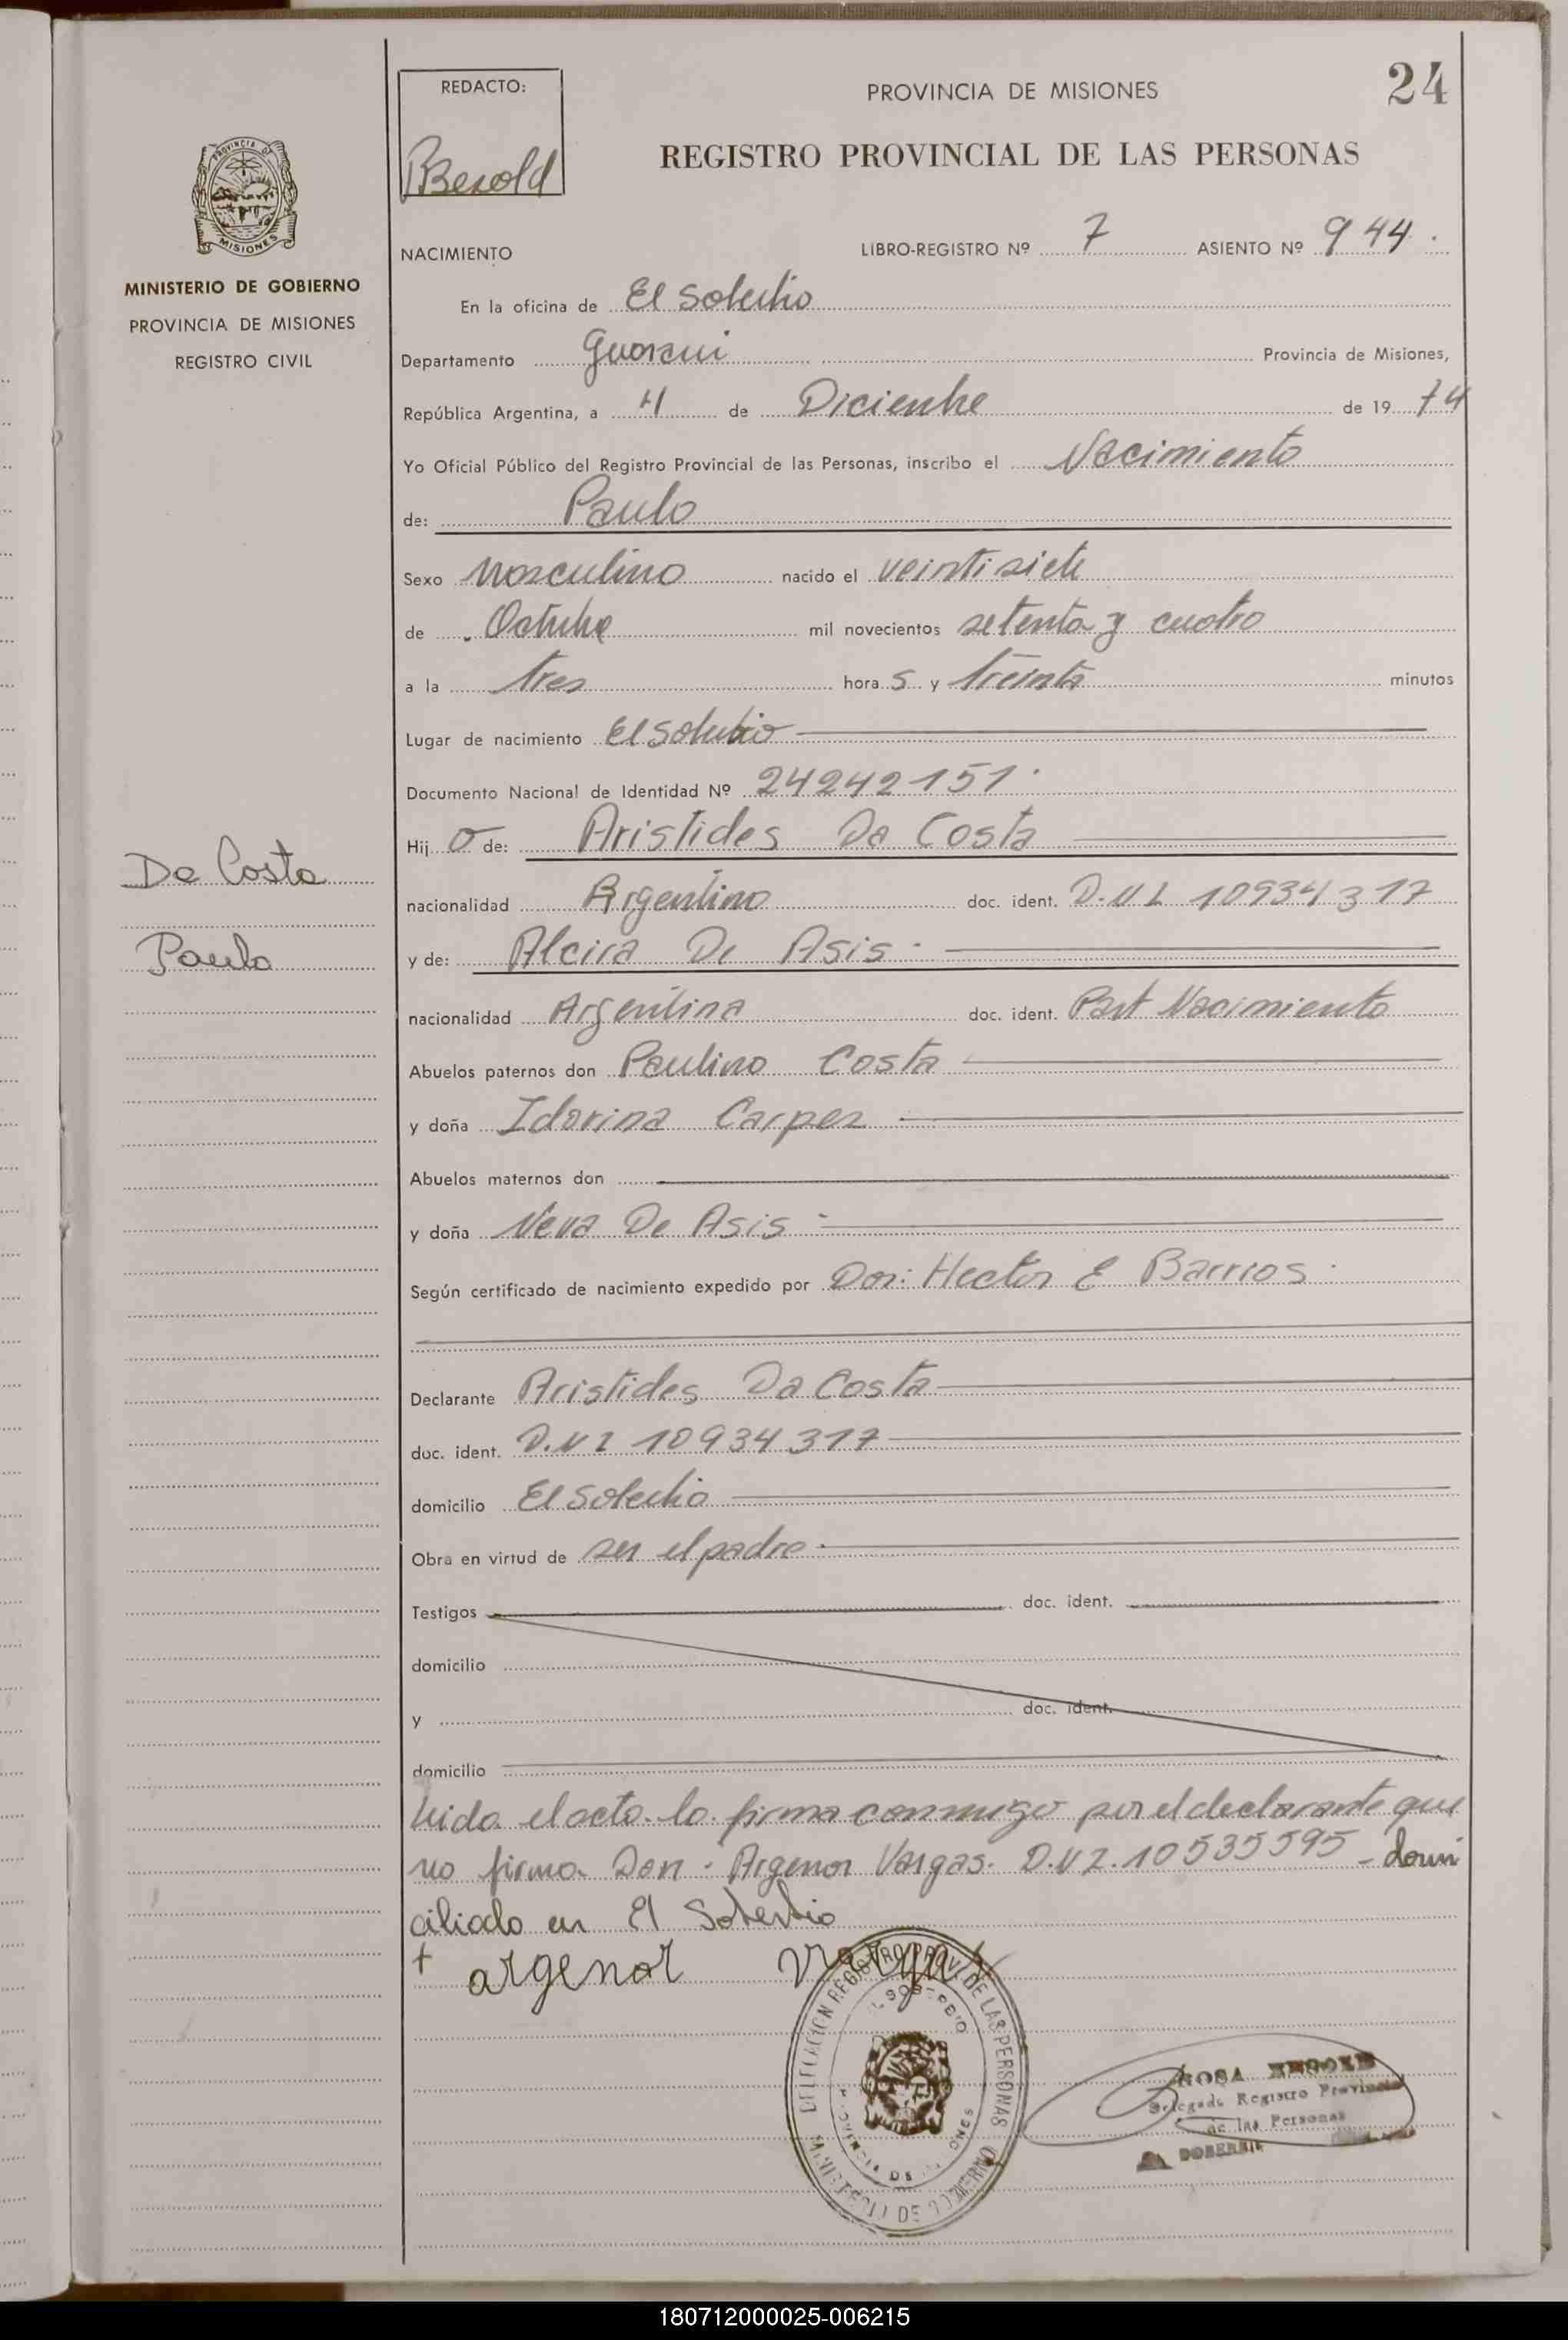 24
REDACTO:
PROVINCIA DE MISIONES
Bezold
REGISTRO PROVINCIAL DE LAS PERSONAS
PROVINCIA DE
MISIONES
MINISTERIO DE GOBIERNO
PROVINCIA DE MISIONES
REGISTRO CIVIL
NACIMIENTO LIBRO-REGISTRO Nº 7 ASIENTO Nº 944.
En la oficina de El Soberbio
Departamento Guarani Provincia de Misiones,
República Argentina, a 4 de Diciembre de 1974
Yo Oficial Público del Registro Provincial de las Personas, inscribo el Nacimiento
de: Paulo
Sexo Masculino nacido el veintisiete
de Octubre mil novecientos setenta y cuatro
a la tres hora s y treinta minutos
Lugar de nacimiento El Soberbio
Documento Nacional de Identidad Nº 24242151.
Hij o de: Aristides Da Costa
nacionalidad Argentino doc. ident. D.N.I. 10934317
y de: Alcira De Asis.
nacionalidad Argentina doc. ident. Part Nacimiento
Abuelos paternos don Paulino Costa
y doña Idorina Carpez
Abuelos maternos don
y doña Neva De Asis
Según certificado de nacimiento expedido por Don: Hector E Barrios.
Declarante Aristides Da Costa
doc. ident. D.N.I 10934317
domicilio El Soberbio
Obra en virtud de ser el padre
Testigos doc. ident.
domicilio
y doc. ident.
domicilio
Leida el acta lo firma conmigo por el declarante que
no firma Don. Argenor Vargas. D.N.I. 10535595 - domi
ciliado en El Soberbio
+ argenor Vargas
Da Costa
Paulo
DELEGACION REGISTRO PROV. DE LAS PERSONAS
EL SOBERBIO
PROVINCIA DE MISIONES
MINISTERIO DE GOBIERNO
ROSA BEZOLD
Delegada Registro Provincial
de las Personas
SOBERBIO
180712000025-006215